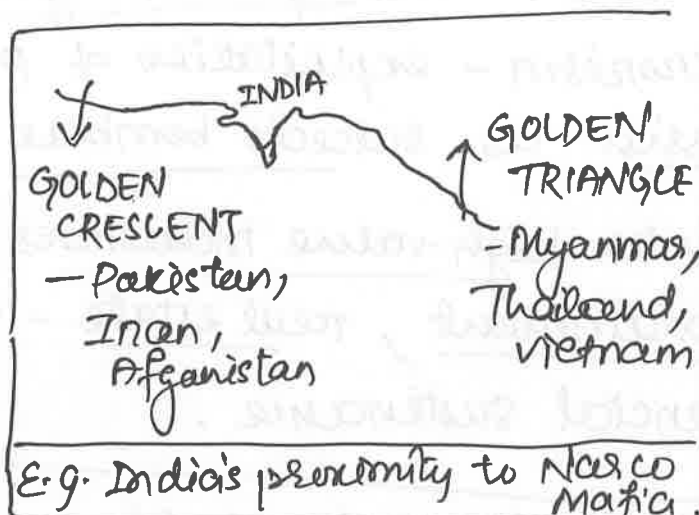 INDIA
GOLDEN
CRESCENT
- Pakistan,
Iran,
Afganistan
GOLDEN
TRIANGLE
- Myanmar,
Thailand,
Vietnam
E.g. India's proximity to Narco
Mafia